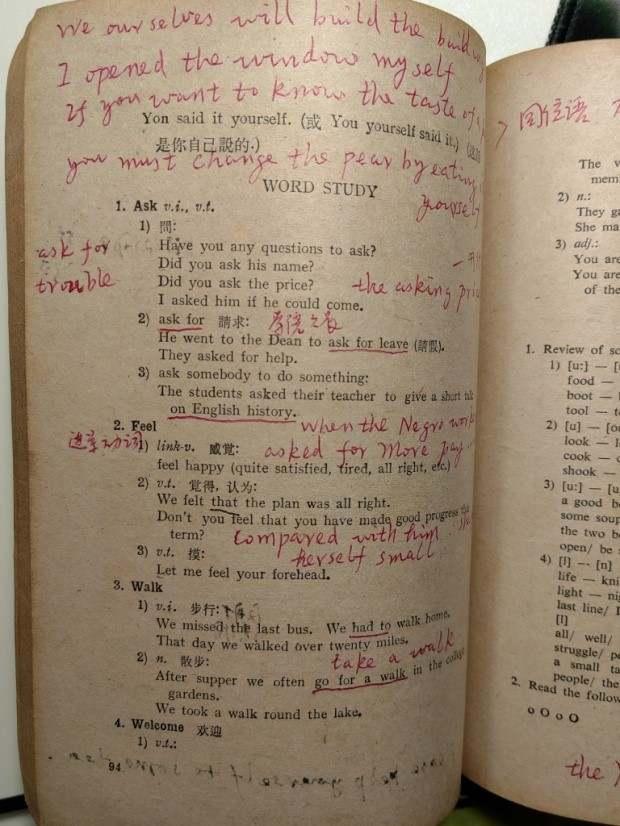 We ourselves will build the
I opened the window myself
If you want to know the taste of a
Yon said it yourself. (或 You yourself said it.)
是你自己説的.)
you must change the pear by eating
yourself
WORD STUDY
1. Ask v.i., v.t.
1) 問:
Have you any questions to ask?
ask for
trouble
Did you ask his name?
Did you ask the price?
the asking
I asked him if he could come.
2) ask for 請求:
He went to the Dean to ask for leave (請假).
They asked for help.
3) ask somebody to do something:
The students asked their teacher to give a short talk
on English history.
2. Feel
when the Negro
1) link-v. 感覚:
asked for more pay
feel happy (quite satisfied, tired, all right, etc.)
2) v.t. 覚得, 认为:
We felt that the plan was all right.
Don't you feel that you have made good progress this
term?
Compared with him
3) v.t. 摸:
herself small
Let me feel your forehead.
3. Walk
1) v.i. 步行:
We missed the last bus. We had to walk home.
That day we walked over twenty miles.
2) n. 散步:
take a walk
After supper we often go for a walk in the college
gardens.
We took a walk round the lake.
4. Welcome 欢迎
1) v.t.:
94
同位语
The
2) n.:
They
She
3) adj.:
You are
You are
of the
1. Review of
1) [u:] —
food —
boot —
tool —
2) [u] —
look —
cook —
shook —
3) [u:] —
a good
some soup
the two
open/ be
4) [l] — [n]
life —
light —
last line/
[l]
all/ well/
struggle/
a small
people/ the
2. Read the
o O o O
the